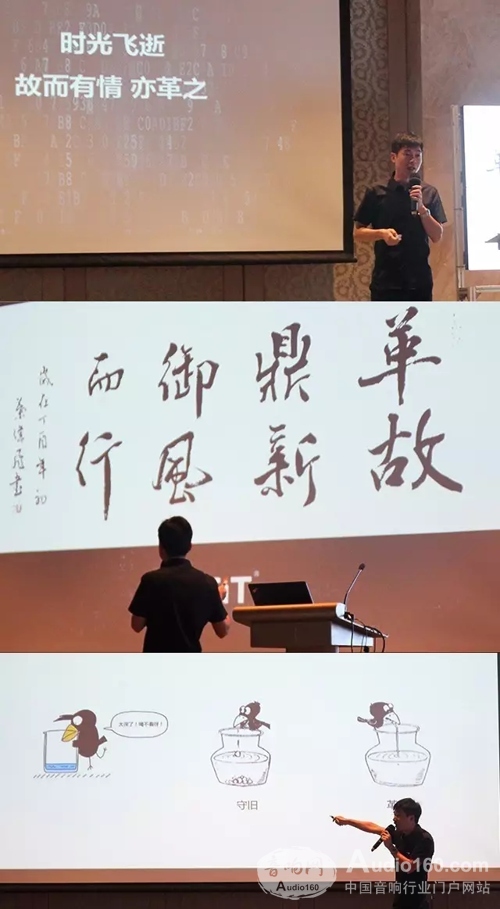 时光飞逝
故而有情 亦革之
革故
鼎新
御風
而行
歲在丁酉年初
守旧
音响网
Audio160
Audio160.com
中国音响行业门户网站